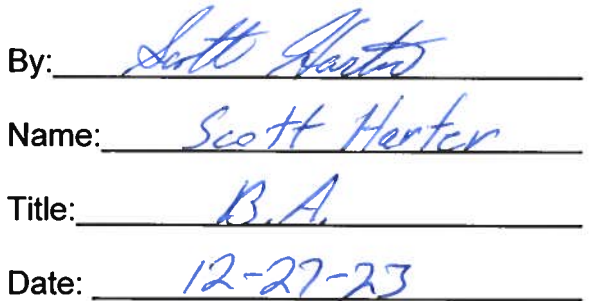 By: Scott Harter
Name: Scott Harter
Title: B.A.
Date: 12-27-23